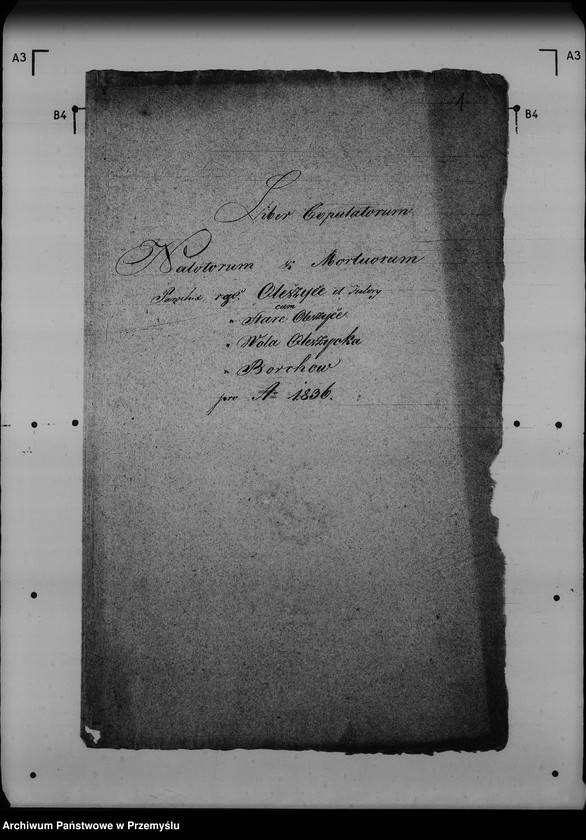 A3
A3
B4
B4
1
Liber Copulatorum
Natotorum & Mortuorum
Oleszyce et Futory
cum
" Stare Oleszyce
" Wola Oleszycka
" Borchow
pro Aº 1836.
Archiwum Państwowe w Przemyślu